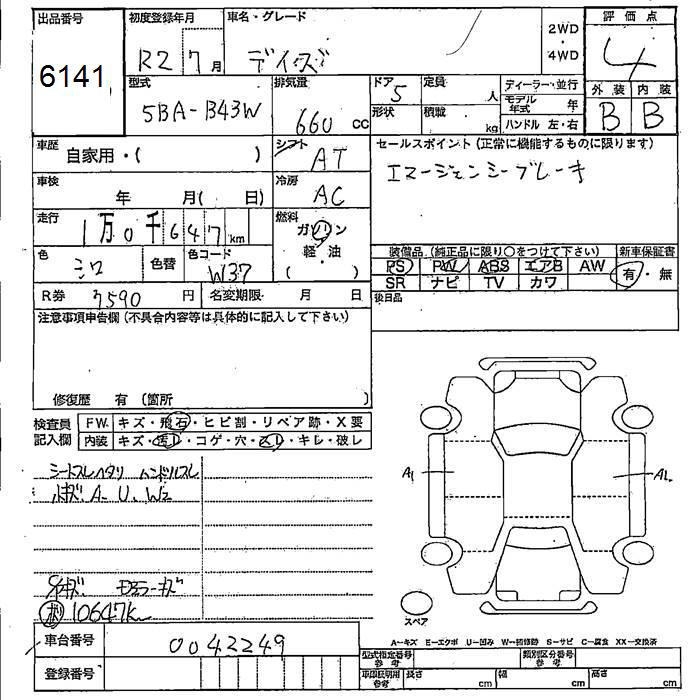 出品番号 6141
初度登録年月 R2 7月
車名・グレード デイズ
2WD・4WD
評価点 4
型式 5BA-B43W
排気量 660 cc
ドア 5
形状
定員 人
積載 kg
ディーラー・並行
モデル年式 年
ハンドル 左・右
外装 B
内装 B
車歴 自家用・( )
シフト AT
セールスポイント (正常に機能するものに限ります)
エマージェンシーブレーキ
車検 年 月( 日)
冷房 AC
走行 1万0千647km
燃料 ガソリン 軽・油 ( )
色 シロ
色替
色コード W37
装備品 (純正品に限り○をつけて下さい)
PS PW ABS エアB AW
SR ナビ TV カワ
新車保証書 有・無
R券 7590円
名変期限 月 日
後日品
注意事項申告欄 (不具合内容等は具体的に記入して下さい)
修復歴 有 (箇所 )
検査員記入欄
FW. キズ・飛石・ヒビ割・リペア跡・X要
内装 キズ・汚レ・コゲ・穴・スレ・キレ・破レ
シートスレヘタリ ハンドルスレ
A. U. W2
10647K
A1
A1
スペア
A—キズ E—エクボ U—凹み W—補修跡 S—サビ C—腐食 XX—交換済
車台番号 0042249
登録番号
型式指定番号 参考
類別区分番号 参考
車印証明用 参考
長さ cm
幅 cm
高さ cm